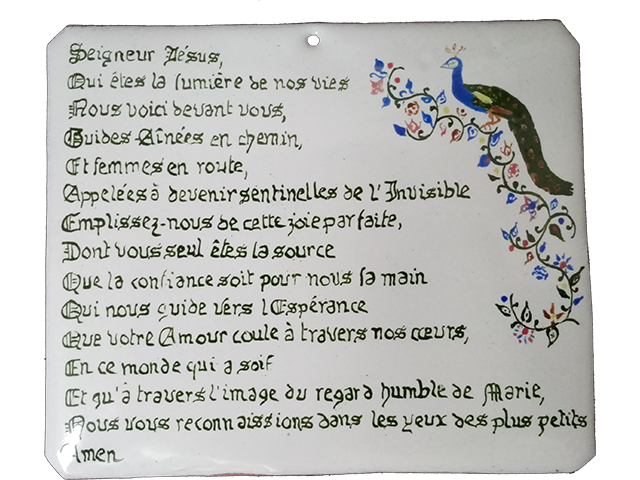 Seigneur Jésus,
Qui êtes la lumière de nos vies
Nous voici devant vous,
Guides-Aînées en chemin,
Et femmes en route,
Appelées à devenir sentinelles de l'Invisible
Emplissez-nous de cette joie parfaite,
Dont vous seul êtes la source
Que la confiance soit pour nous la main
Qui nous guide vers l'Espérance
Que votre Amour coule à travers nos cœurs,
En ce monde qui a soif
Et qu'à travers l'image du regard humble de Marie,
Nous vous reconnaissions dans les yeux des plus petits
Amen